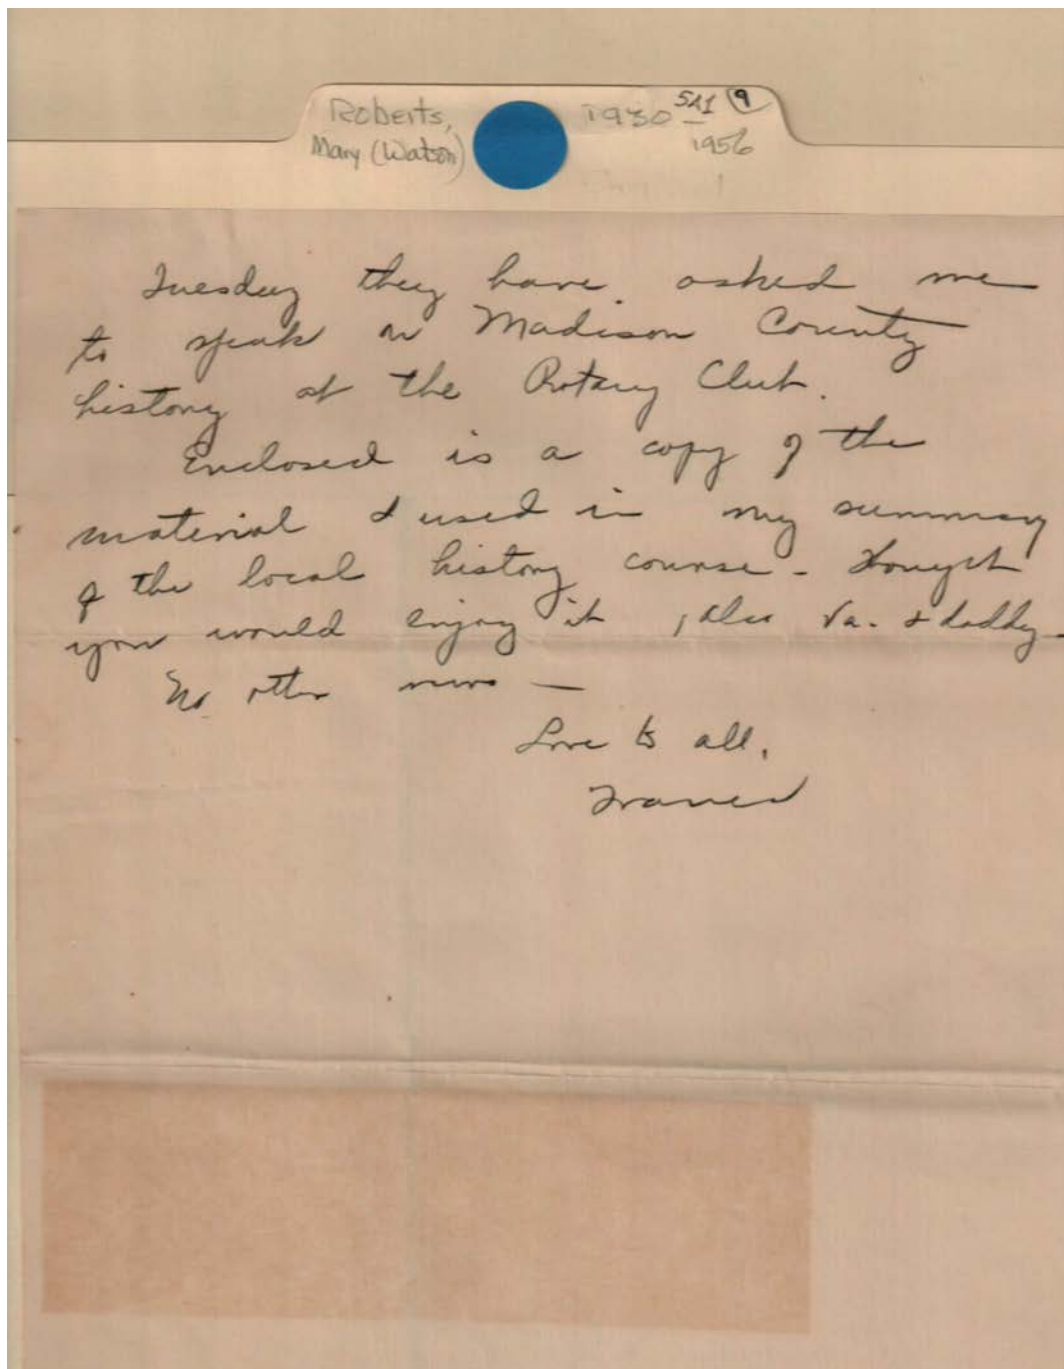 Roberts,
Mary (Watson)
1930 —
1956
5A1 9
Tuesday they have asked me
to speak on Madison County
history at the Rotary Club.
Enclosed is a copy of the
material I used in my summary
of the local history course - Thought
you would enjoy it, also Va. & daddy -
No other news —
Love to all,
Frances